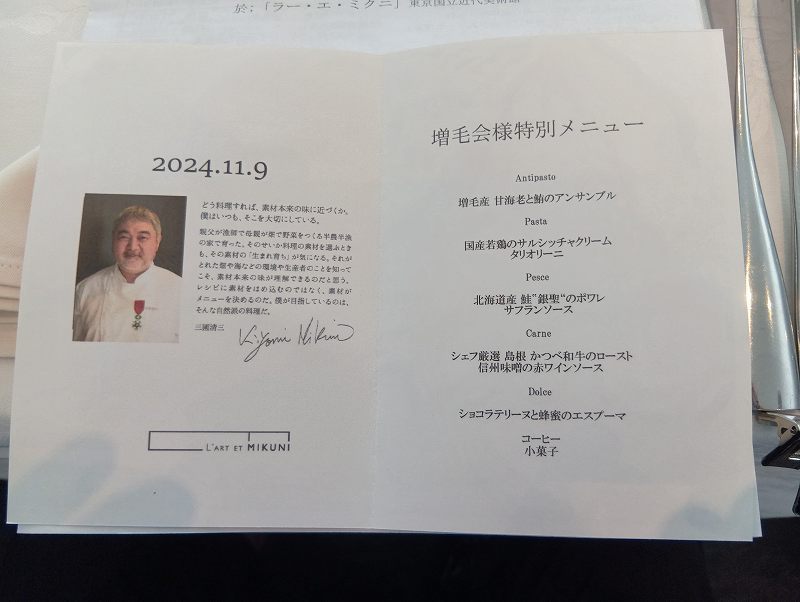 於:「ラー・エ・ミクニ」東京国立近代美術館
2024.11.9
どう料理すれば、素材本来の味に近づくか。
僕はいつも、そこを大切にしている。
親父が漁師で母親が畑で野菜をつくる半農半漁
の家で育った。そのせいか料理の素材を選ぶとき
も、その素材の「生まれ育ち」が気になる。それが
とれた畑や海などの環境や生産者のことを知って
こそ、素材本来の味が理解できるのだと思う。
レシピに素材をはめ込むのではなく、素材が
メニューを決めるのだ。僕が目指しているのは、
そんな自然派の料理だ。
三國清三
Kiyomi Mikuni
L'ART ET MIKUNI
増毛会様特別メニュー
Antipasto
増毛産 甘海老と鮪のアンサンブル
Pasta
国産若鶏のサルシッチャクリーム
タリオリーニ
Pesce
北海道産 鮭〝銀聖“のポワレ
サフランソース
Carne
シェフ厳選 島根 かつべ和牛のロースト
信州味噌の赤ワインソース
Dolce
ショコラテリーヌと蜂蜜のエスプーマ
コーヒー
小菓子